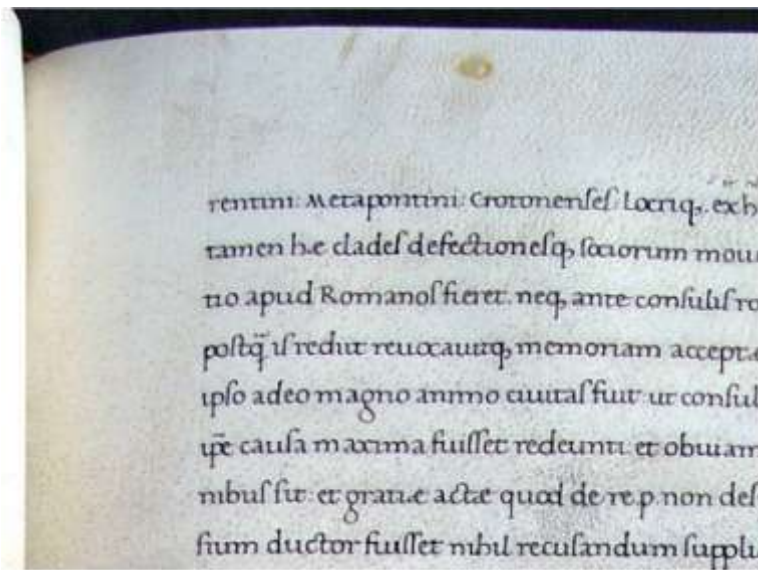 rentini. Metapontini. Crotonenſeſ. Locriq; ex h
tamen hęc cladeſ defectioneſq; ſociorum mou
tio apud Romanoſ fieret. neq; ante conſuliſ ro
poſtq̃ iſ rediit reuocauitq; memoriam acceptę
ipſo adeo magno animo ciuitaſ fuit ut conſul
ip̃e cauſa maxima fuiſſet redeunti et obuiam
nibuſ ſit et gratię actę quod de re.p. non deſ
ſium ductor fuiſſet nihil recuſandum ſuppli